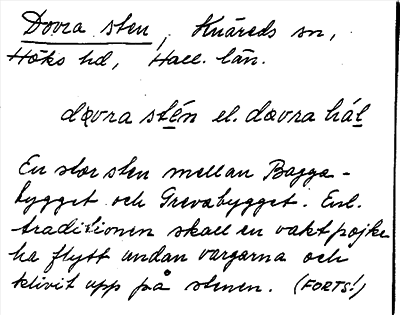 Dovra sten, Knäreds sn,
Höks hd, Hall. län.
dovra stén el. dovra hál
En stor sten mellan Bagga-
bygget och Grevabygget. Enl.
traditionen skall en vaktpojke
ha flytt undan vargarna och
klivit upp på stenen. (FORTS!)